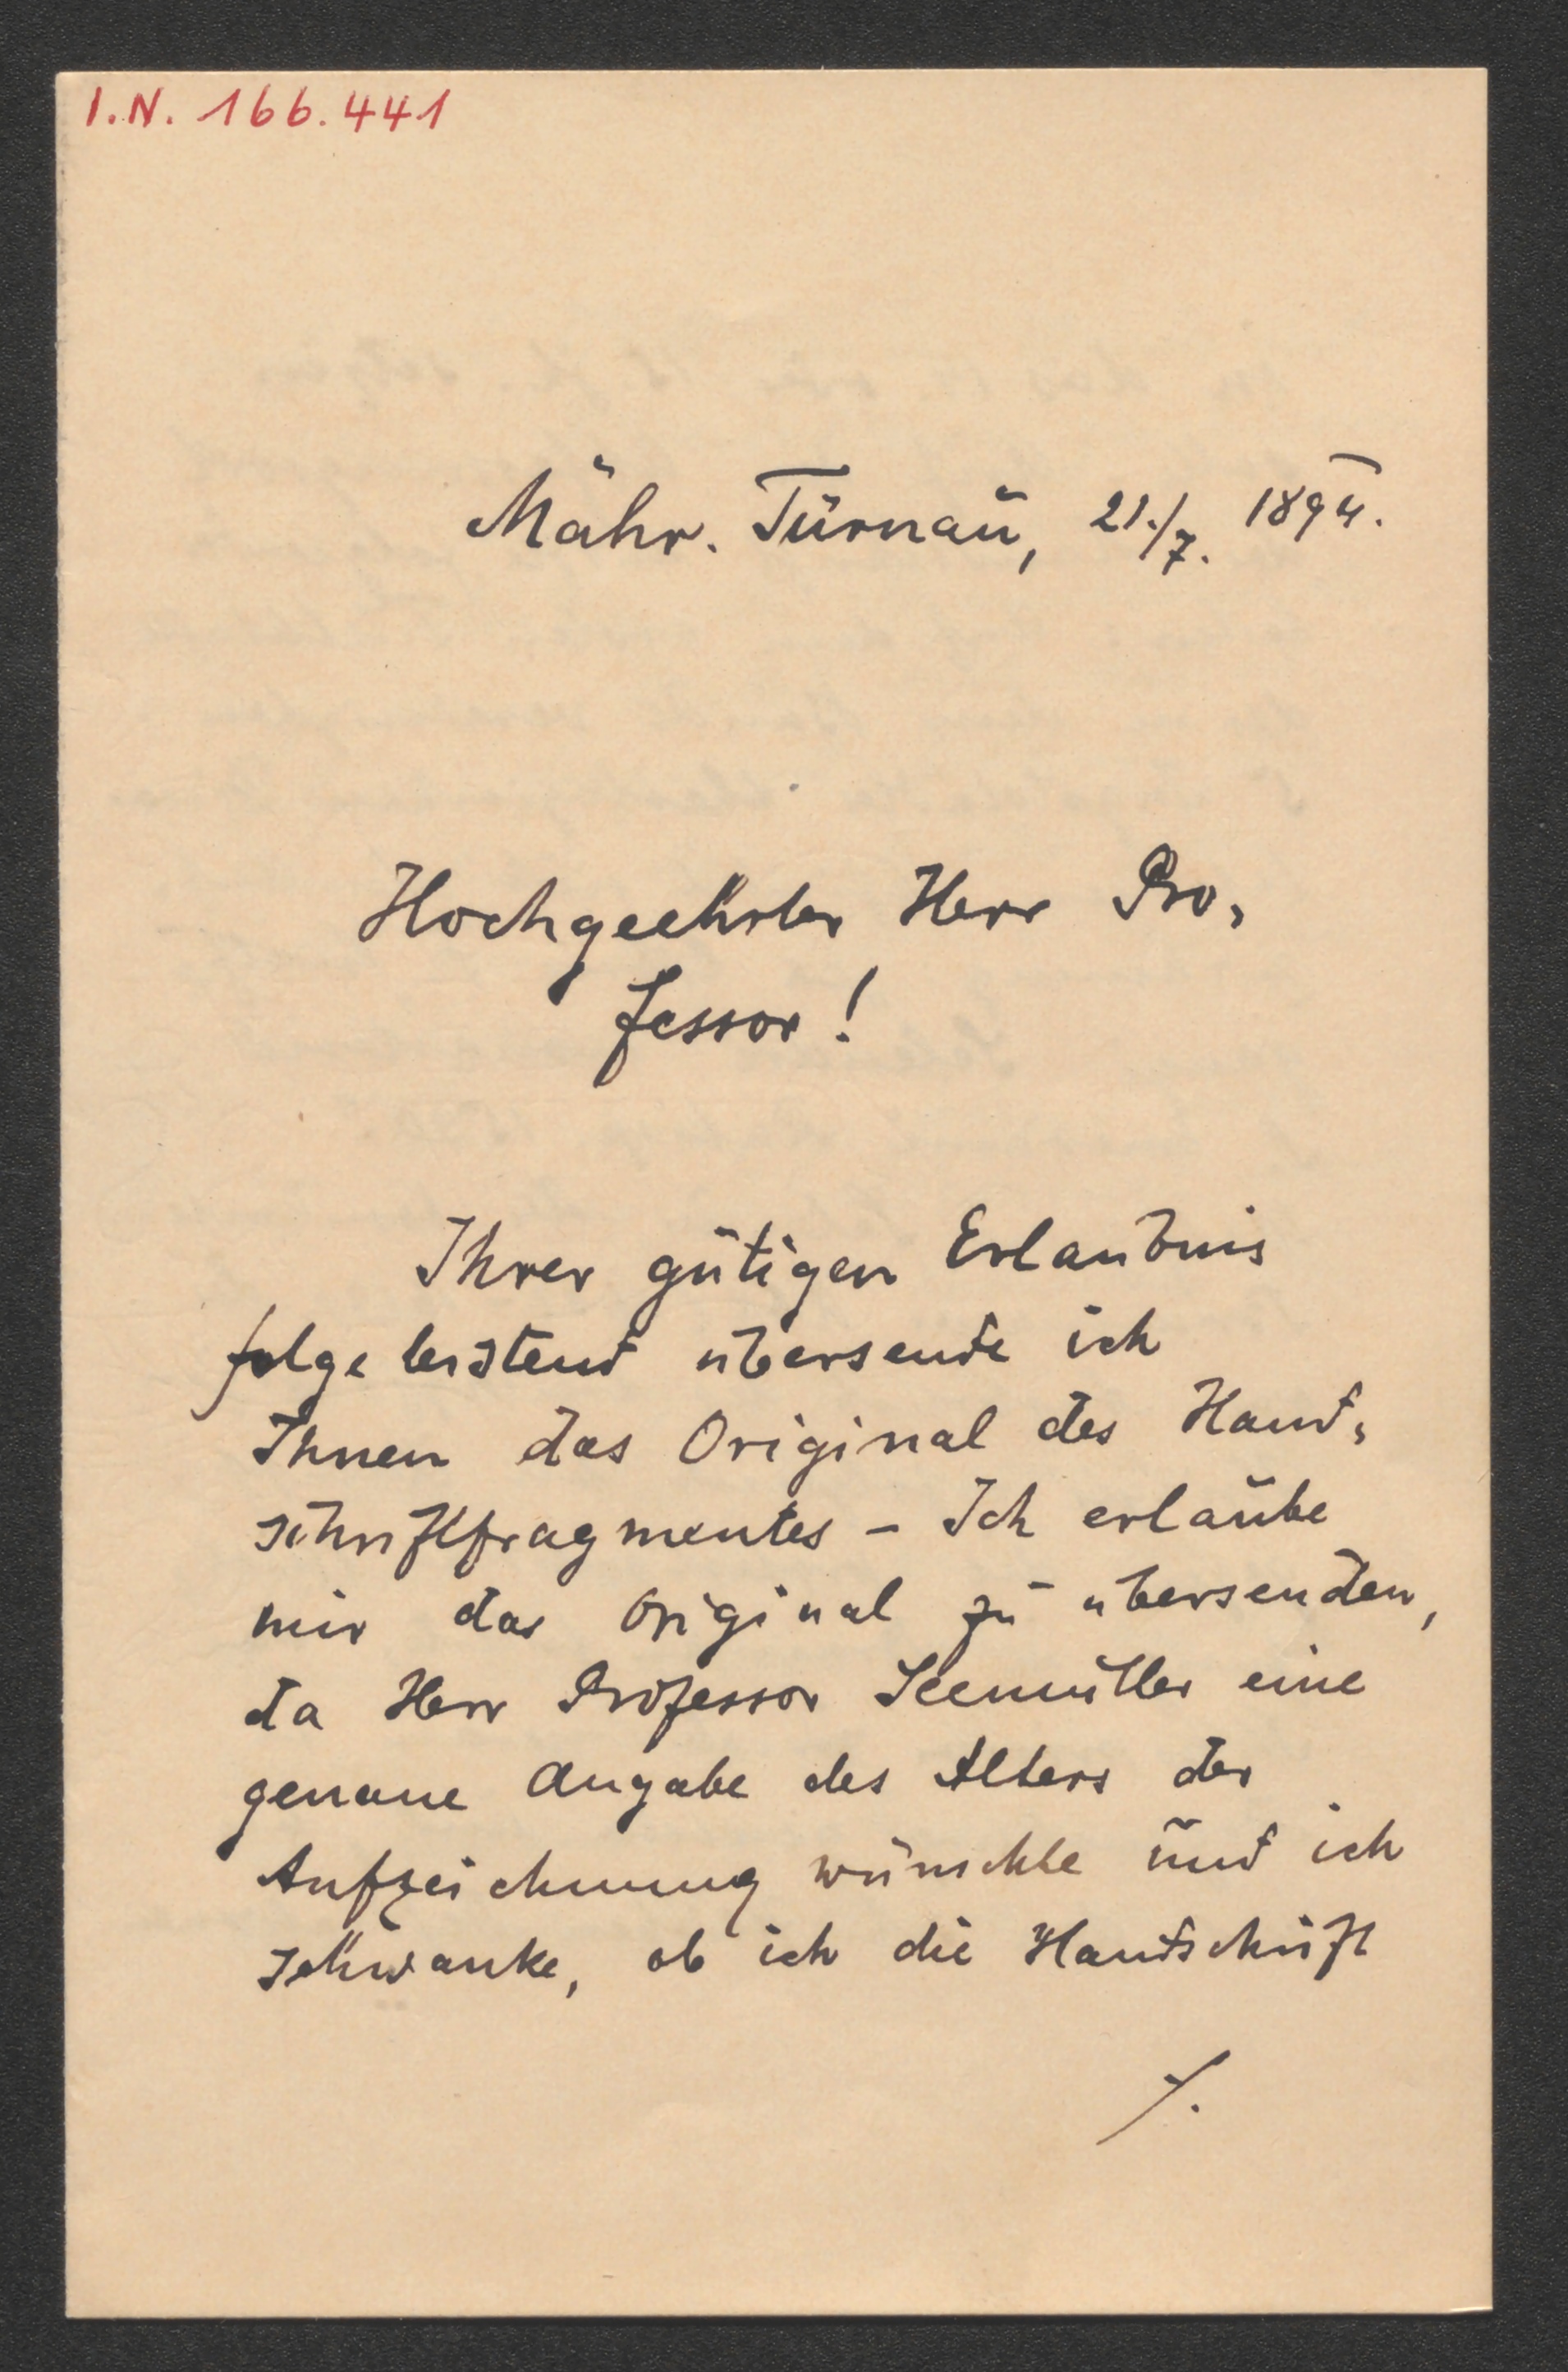 I.N. 166.441
Mähr. Türnau, 21./7. 1894.
Hochgeehrter Herr Pro-
fessor!
Ihrer gütigen Erlaubnis
folge leistend übersende ich
Ihnen das Original des Hand-
schriftfragmentes – Ich erlaube
mir das Original zu übersenden,
da Herr Professor Seemüller eine
genaue Angabe des Alters der
Aufzeichnung wünschte und ich
schwanke, ob ich die Handschrift
./.